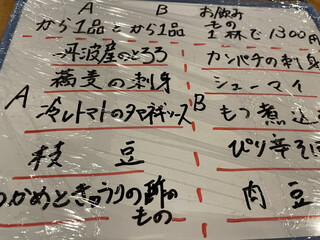 A B お飲み
から1品とから1品 もの
1杯で1300円
丹波産のとろろ カンパチの刺身
蕎麦の刺身 シューマイ
A 冷しトマトのタマネギソース B もつ煮込
枝豆 ぴり辛そ
わかめときゅうりの酢の 肉豆
もの